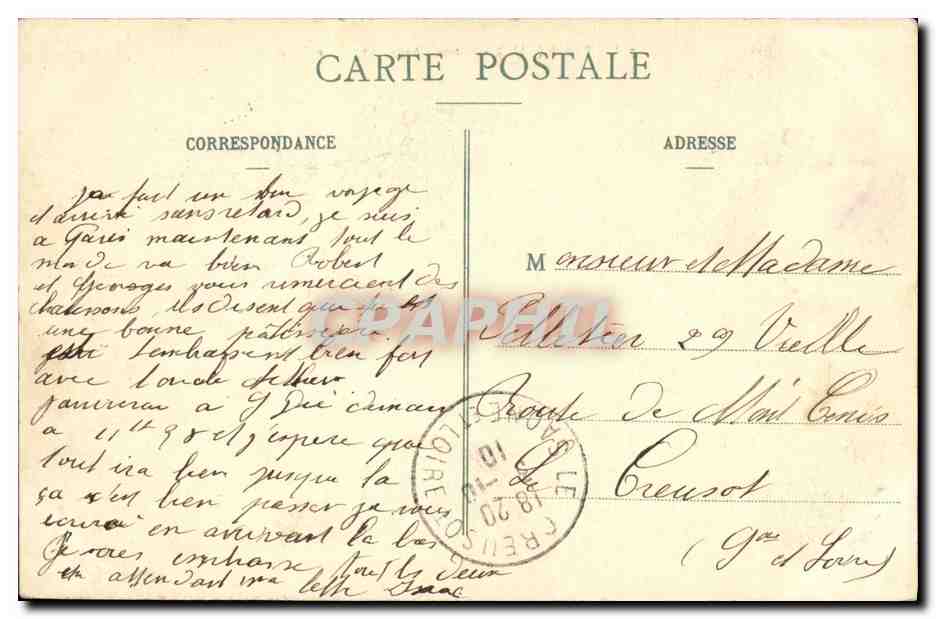 CARTE POSTALE
CORRESPONDANCE
ADRESSE
fait un bon voyage
sans retard, je suis
a Paris maintenant tout le
monde va bien Robert
et Georges vous remercient des
chaussons ils disent que
une bonne pâtissière
t'embrassent bien fort
avec l'oncle
a demain
a 11h 38 et j'espere que
tout ira bien jusque la
ça c'est bien passer je vous
en arrivant la bas
Je vous embrasse tout les deux
en attendant ma lettre Isaac
Monsieur et Madame
Pelletier 29 Vieille
route de Mont Cenis
Le Creusot
(Sne et Loire)
CPAPHIL
LE CREUSOT
SAONE ET LOIRE
18 20
10 - 10